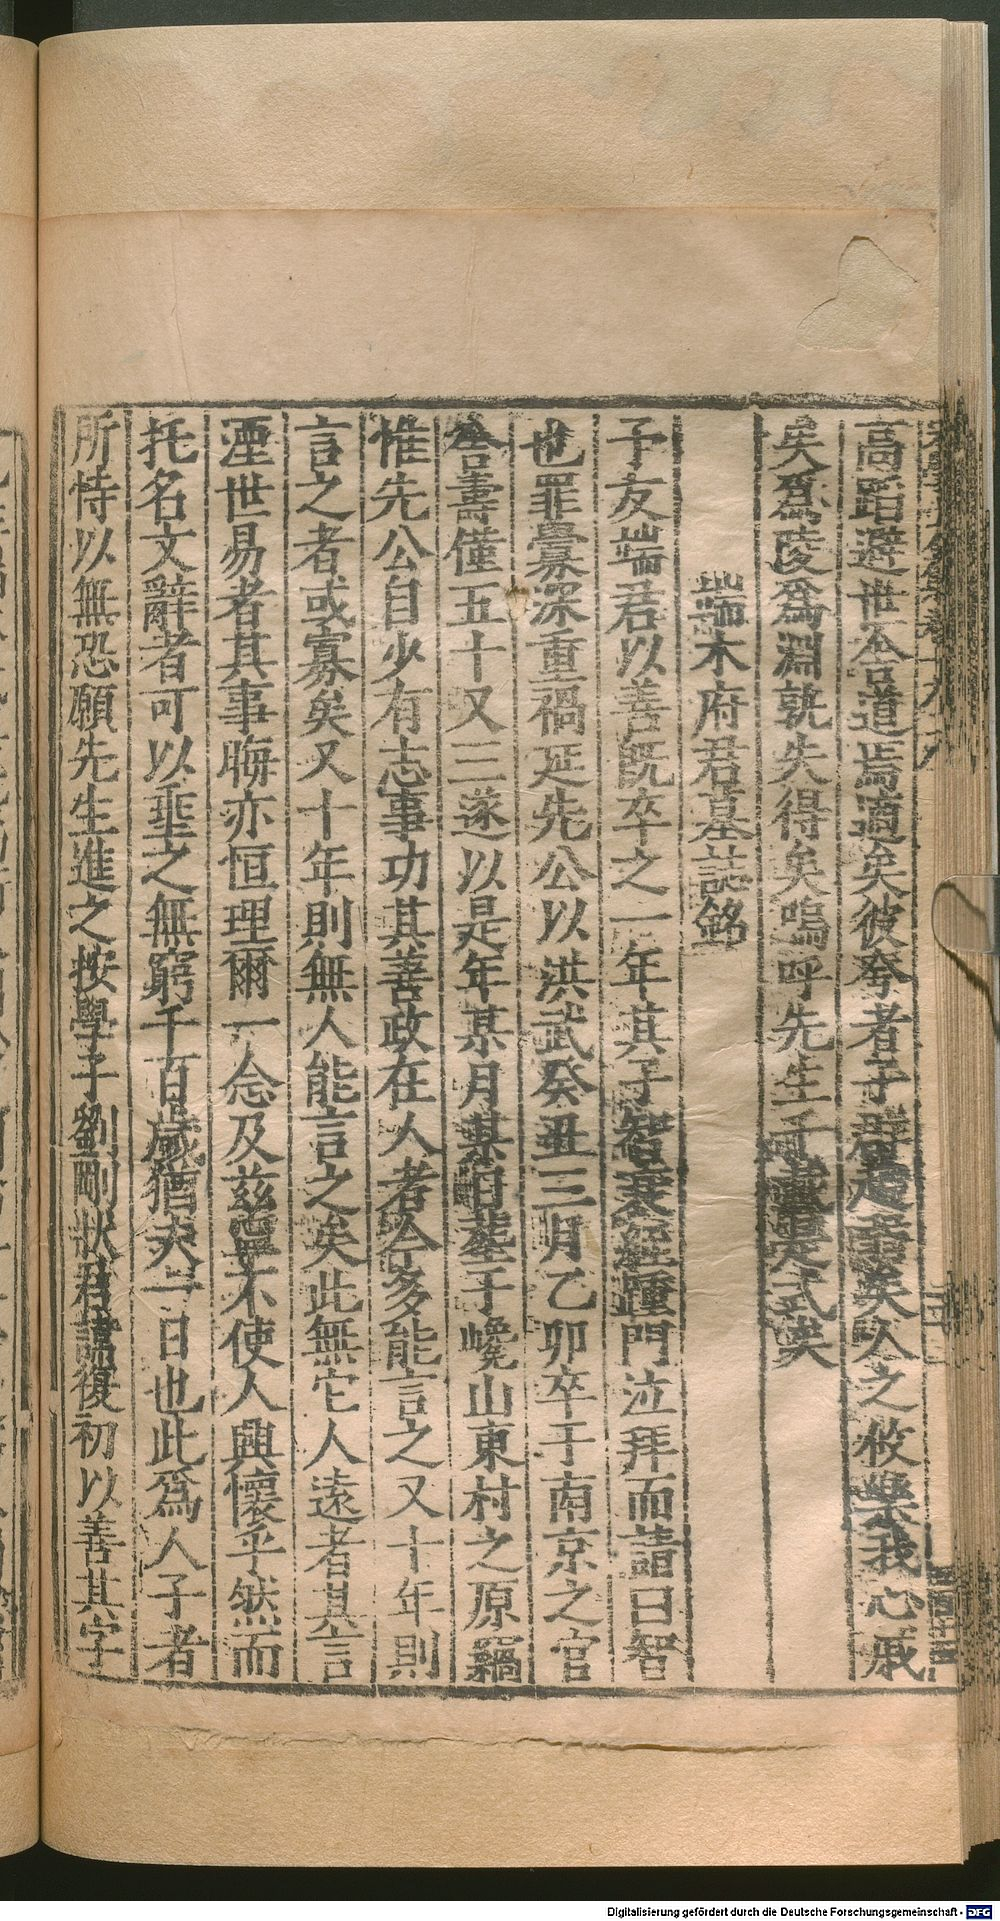 高蹈避世合道焉適矣彼夸者子群趨矣人之攸樂我心戚
矣爲陵爲淵孰失得矣嗚呼先生千載是式矣
端木府君墓誌銘
予友端君以善旣卒之一年其子智衰絰踵門泣拜而請曰智
也罪釁深重禍延先公以洪武癸丑三月乙卯卒于南京之官
舍壽僅五十又三遂以是年某月某日塟于巉山東村之原竊
惟先公自少有志事功其善政在人者今多能言之又十年則
言之者或寡矣又十年則無人能言之矣此無它人遠者其言
湮世易者其事晦亦恒理爾一念及茲寧不使人興懷乎然而
托名文辭者可以埀之無窮千百歲猶夫一日也此爲人子者
所恃以無恐願先生進之按學子劉剛狀君諱復初以善其字
Digitalisierung gefördert durch die Deutsche Forschungsgemeinschaft - DFG